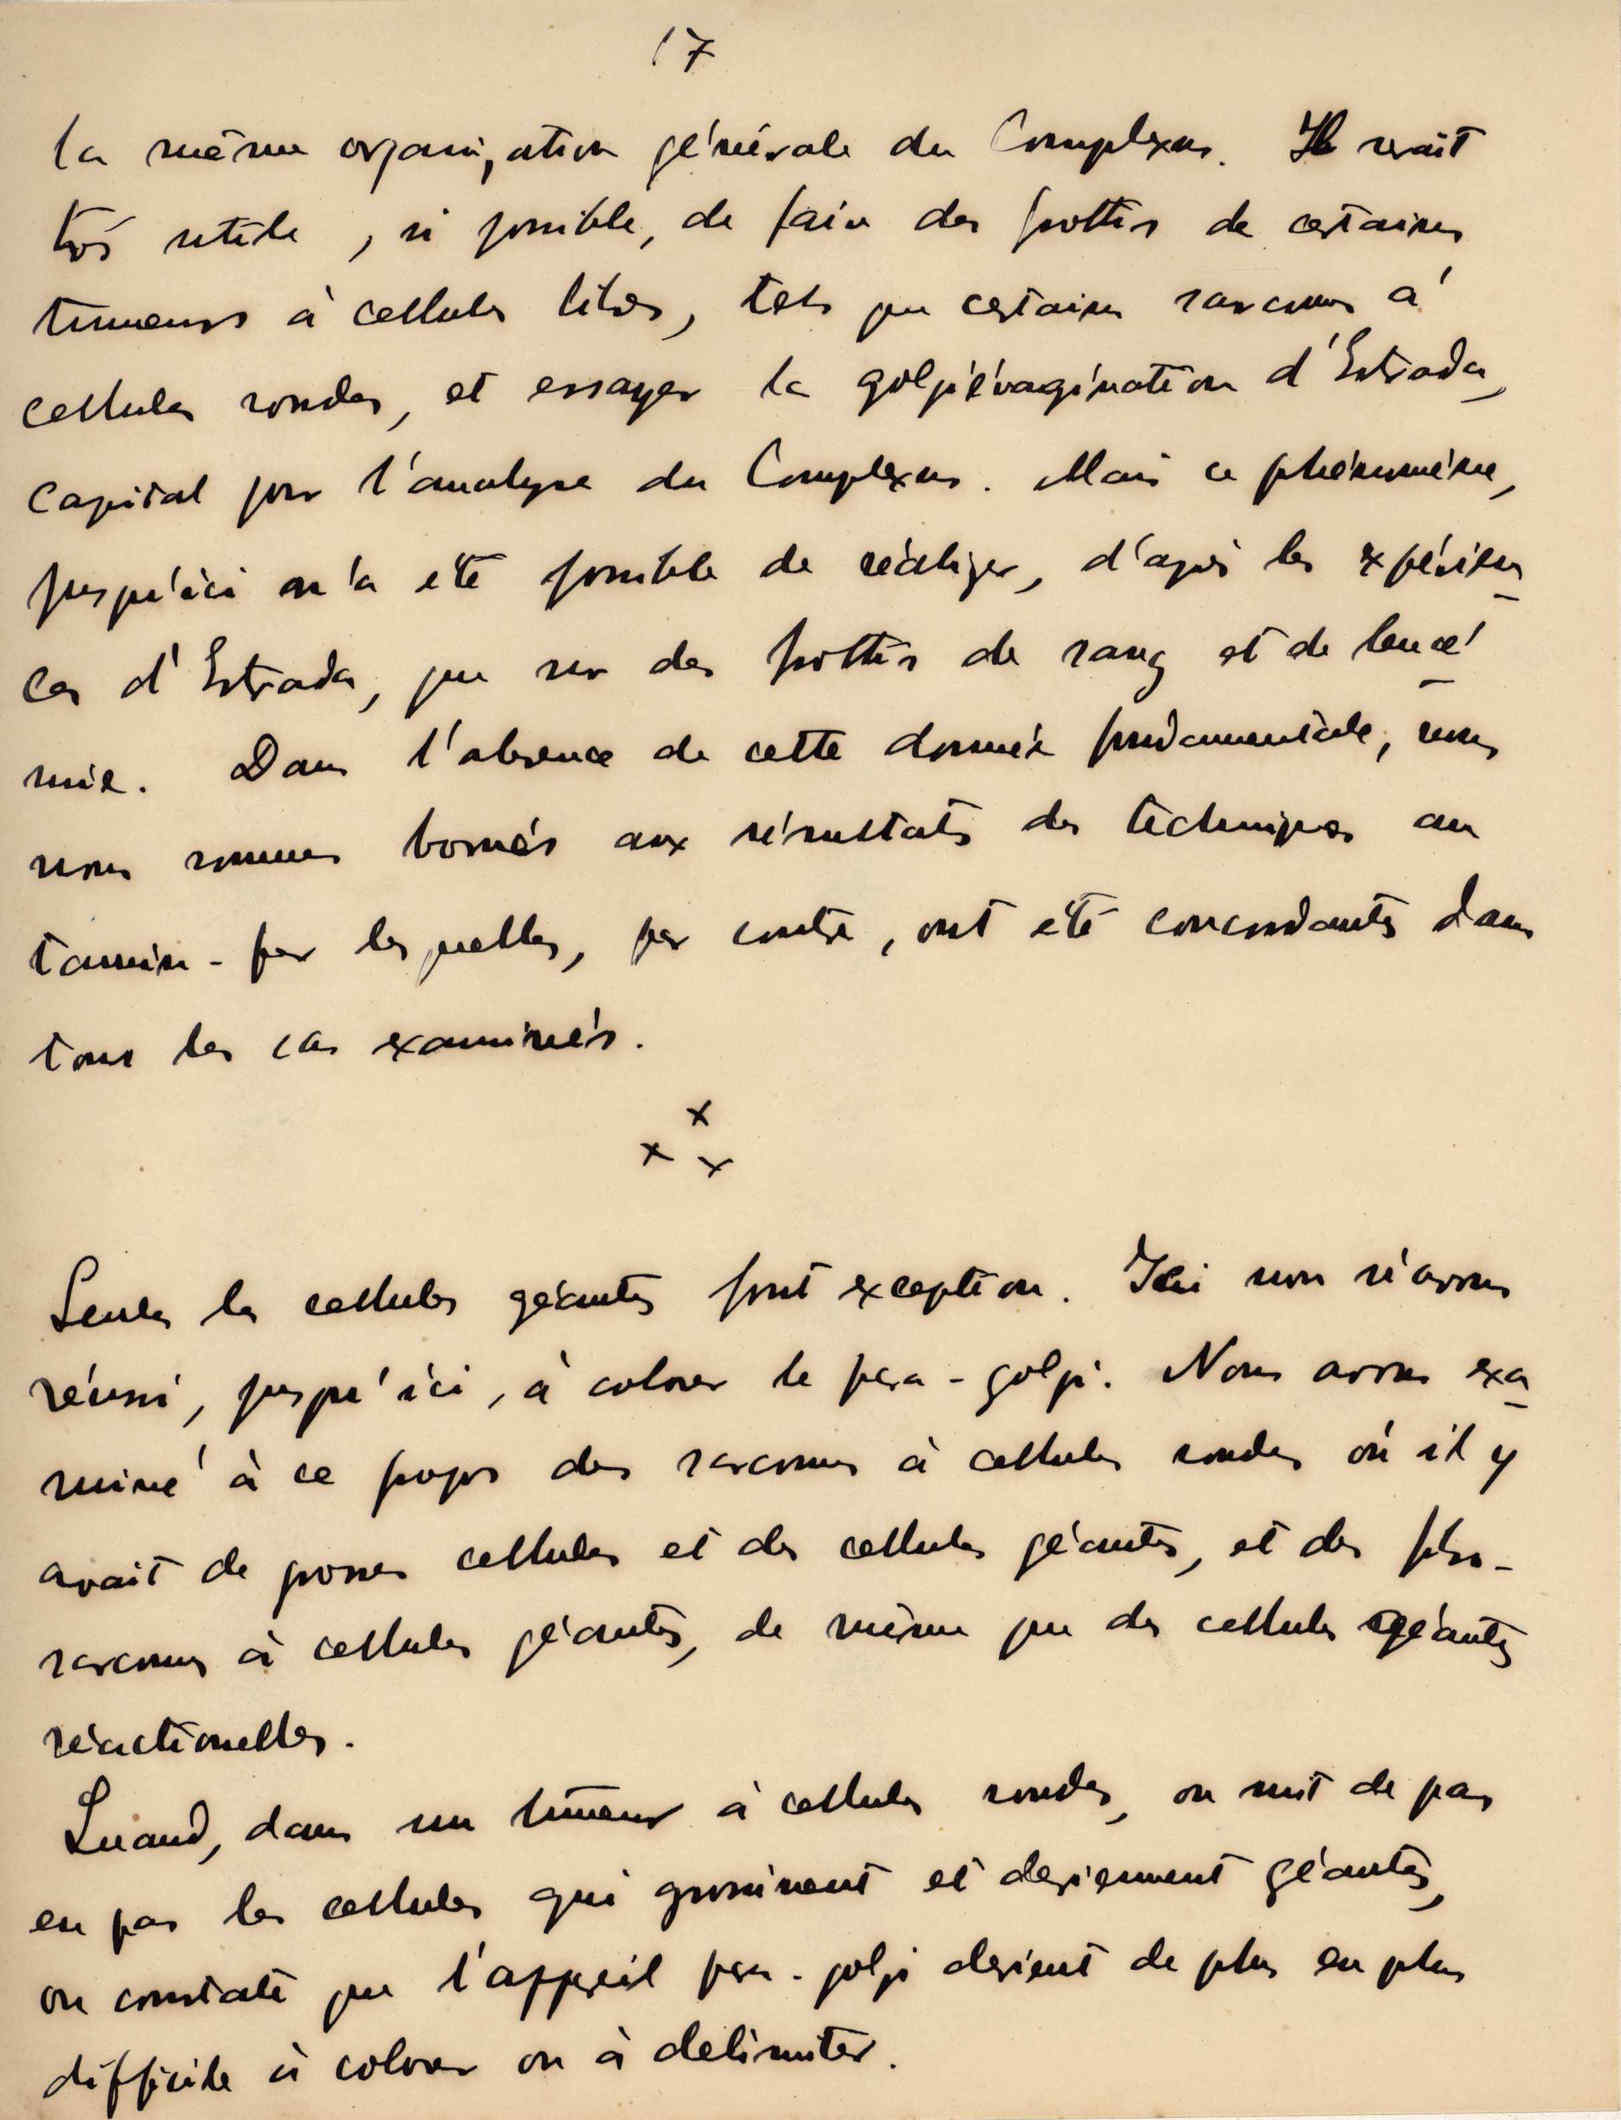 17
la même organisation générale du Complexus. Il serait
très utile, si possible, de faire des frottis de certaines
tumeurs à cellules libres, tels que certains sarcomes à
cellules rondes, et essayer la golgiévagination d'Estrada,
capital pour l'analyse du Complexus. Mais ce phénomène,
jusqu'ici n'a été possible de réaliser, d'après les expérien-
ces d'Estrada, que sur des frottis de sang et de leucé-
mie. Dans l'absence de cette donnée fondamentale, nous
nous sommes bornés aux résultats des techniques au
tannin-fer lesquelles, par contre, ont été concordants dans
tous les cas examinés.
x
x x
Seules les cellules géantes font exception. Ici nous n'avons
réussi, jusqu'ici, à colorer le para-golgi. Nous avons exa-
miné à ce propos des sarcomes à cellules rondes où il y
avait de grosses cellules et des cellules géantes, et des fibro-
sarcomes à cellules géantes, de même que des cellules géantes
réactionelles.
Quand, dans un tumeur à cellules rondes, on suit de pas
en pas les cellules qui grossissent et deviennent géantes,
on constate que l'appareil para-golgi devient de plus en plus
difficile à colorer ou à delimiter.